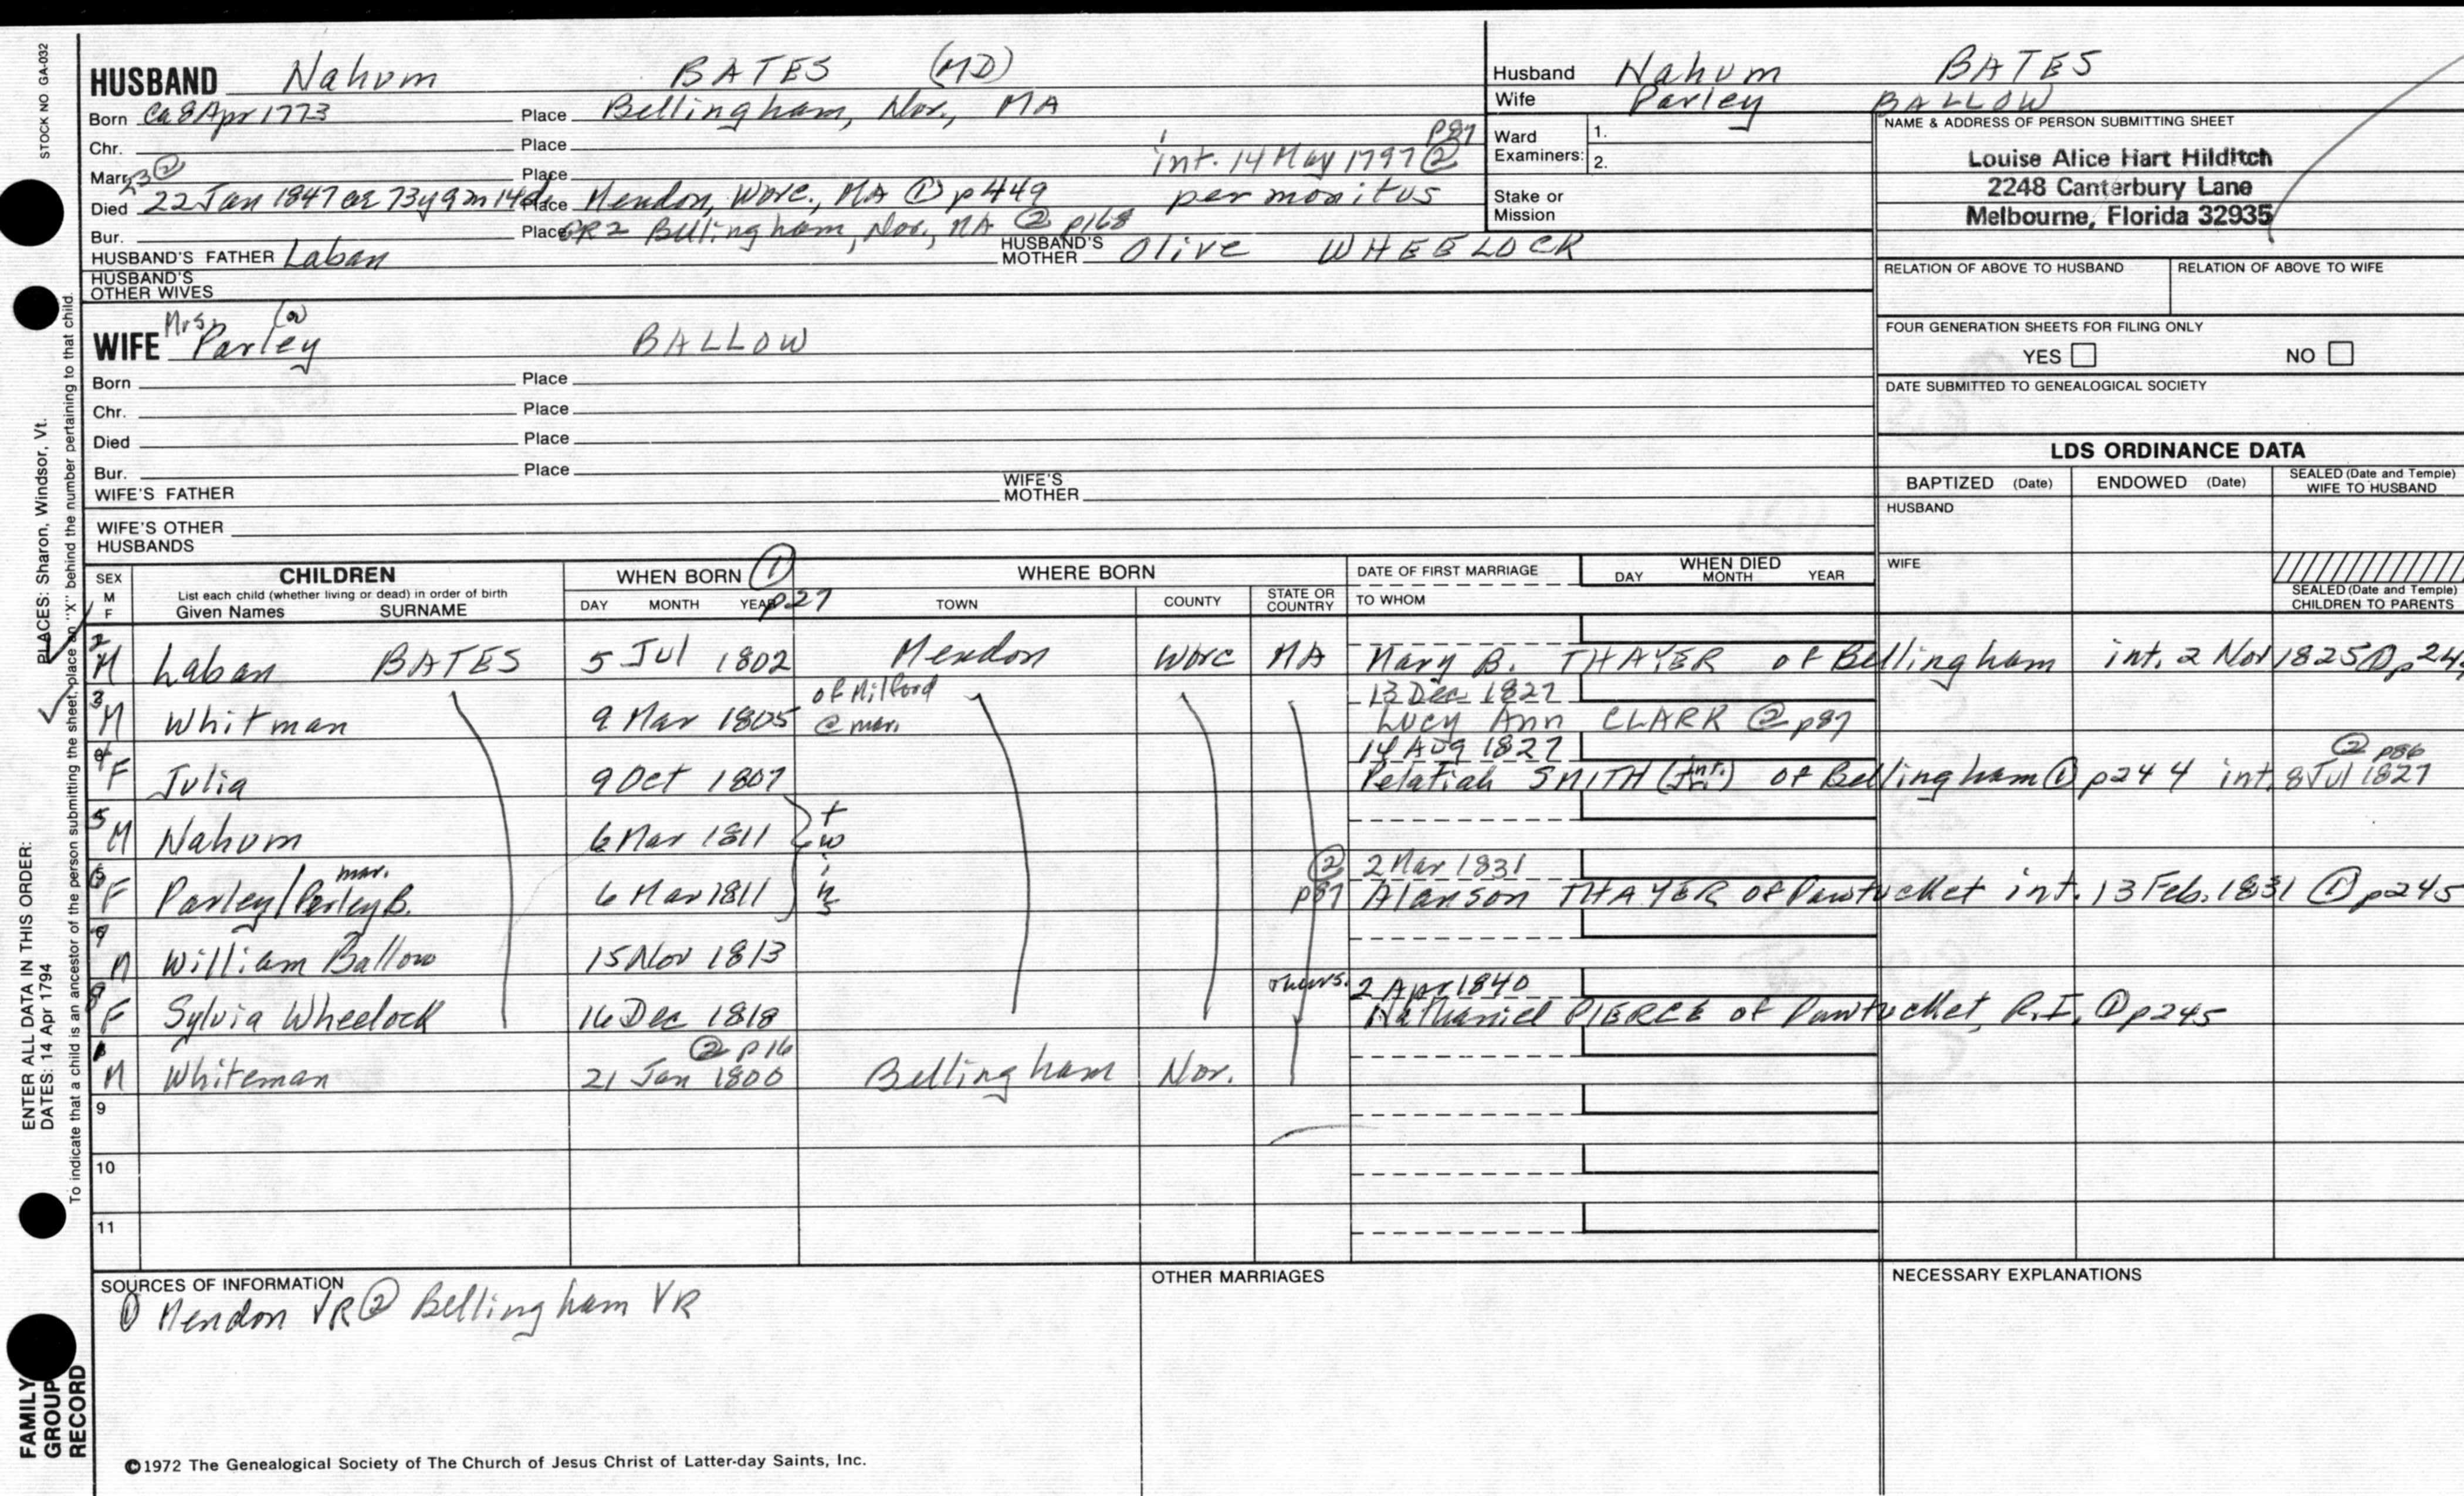 STOCK NO GA-032
HUSBAND Nahum BATES (MD)
Born Ca 8 Apr 1773 Place Bellingham, Nor., MA
Chr. Place
Marr. Place int. 14 May 1797 ② p87
23 ②
Died 22 Jan 1847 ae 73y 9m 14d Place Mendon, Worc., MA ① p449 per monitus
Bur. Place GR2 Bellingham, Nor., MA ② p168
HUSBAND'S FATHER Laban HUSBAND'S MOTHER Olive WHEELOCK
HUSBAND'S OTHER WIVES
WIFE Mrs. Parley (a) BALLOW
Born Place
Chr. Place
Died Place
Bur. Place
WIFE'S FATHER WIFE'S MOTHER
WIFE'S OTHER HUSBANDS
Husband Nahum BATES
Wife Parley BALLOW
Ward Examiners: 1. 2.
Stake or Mission
NAME & ADDRESS OF PERSON SUBMITTING SHEET
Louise Alice Hart Hilditch
2248 Canterbury Lane
Melbourne, Florida 32935
RELATION OF ABOVE TO HUSBAND RELATION OF ABOVE TO WIFE
FOUR GENERATION SHEETS FOR FILING ONLY
YES NO
DATE SUBMITTED TO GENEALOGICAL SOCIETY
LDS ORDINANCE DATA
BAPTIZED (Date) ENDOWED (Date) SEALED (Date and Temple) WIFE TO HUSBAND
HUSBAND
WIFE
SEALED (Date and Temple) CHILDREN TO PARENTS
SEX M F CHILDREN List each child (whether living or dead) in order of birth Given Names SURNAME
WHEN BORN ① p27 DAY MONTH YEAR
WHERE BORN TOWN COUNTY STATE OR COUNTRY
DATE OF FIRST MARRIAGE TO WHOM
WHEN DIED DAY MONTH YEAR
2 M Laban BATES 5 Jul 1802 Mendon Worc MA Mary B. THAYER of Bellingham int. 2 Nov 1825 ① p24
3 M Whitman 9 Mar 1805 of Milford @ mar. 13 Dec 1827 Lucy Ann CLARK ② p87
4 F Julia 9 Oct 1807 14 Aug 1827 Pelatiah SMITH (Jr. int.) of Bellingham ① p244 int. 8 Jul 1827 ② p86
5 M Nahum 6 Mar 1811 twins
6 F Parley/Perley B. mar. 6 Mar 1811 ② p87 2 Mar 1831 Alanson THAYER of Pawtucket int. 13 Feb. 1831 ① p245
7 M William Ballow 15 Nov 1813
8 F Sylvia Wheelock 16 Dec 1818 Thurs. 2 Apr 1840 Nathaniel PIERCE of Pawtucket, R.I. ① p245
1 M Whiteman 21 Jan 1800 ② p16 Bellingham Nor.
9
10
11
SOURCES OF INFORMATION
① Mendon VR ② Bellingham VR
OTHER MARRIAGES
NECESSARY EXPLANATIONS
©1972 The Genealogical Society of The Church of Jesus Christ of Latter-day Saints, Inc.
ENTER ALL DATA IN THIS ORDER:
DATES: 14 Apr 1794
PLACES: Sharon, Windsor, Vt.
To indicate that a child is an ancestor of the person submitting the sheet, place an "X" behind the number pertaining to that child.
FAMILY GROUP RECORD